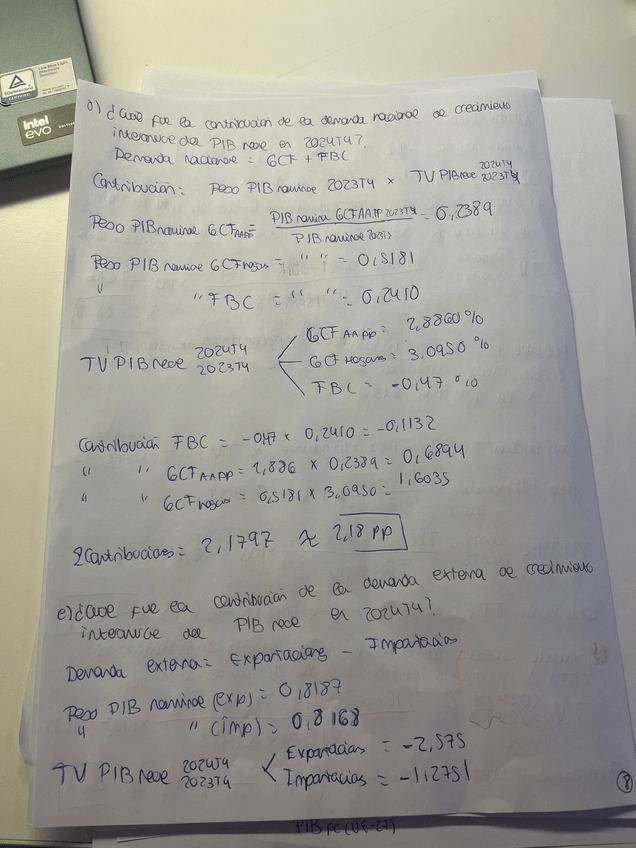 TÜVRheinland
CERTIFIED
Low Blue Light
intel
evo
EDITION
d) ¿Cuál fue la contribución de la demanda nacional al crecimiento
interanual del PIB real en 2024T4?
Demanda nacional = GCF + FBC
Contribución: Peso PIB nominal 2023T4 × TV PIB real 2024T4 / 2023T4
Peso PIB nominal GCF AAPP = PIB nominal GCF AAPP 2023T4 / PIB nominal 2023T4 = 0,2389
Peso PIB nominal GCF Hogares = " " = 0,5181
" " FBC = " " = 0,2410
TV PIB real 2024T4 / 2023T4
GCF AAPP = 2,8860 %
GCF Hogares = 3,0950 %
FBC = -0,47 %
Contribución FBC = -0,47 × 0,2410 = -0,1132
" " GCF AAPP = 2,886 × 0,2389 = 0,6894
" " GCF Hogares = 0,5181 × 3,0950 = 1,6035
Σ Contribuciones = 2,1797 ≈ 2,18 pp
e) ¿Cuál fue la contribución de la demanda externa al crecimiento
interanual del PIB real en 2024T4?
Demanda externa = Exportaciones - Importaciones
Peso PIB nominal (exp) = 0,8187
" " (imp) = 0,8168
TV PIB real 2024T4 / 2023T4
Exportaciones = -2,575
Importaciones = -1,2751
8
PIB pc (UE-27)